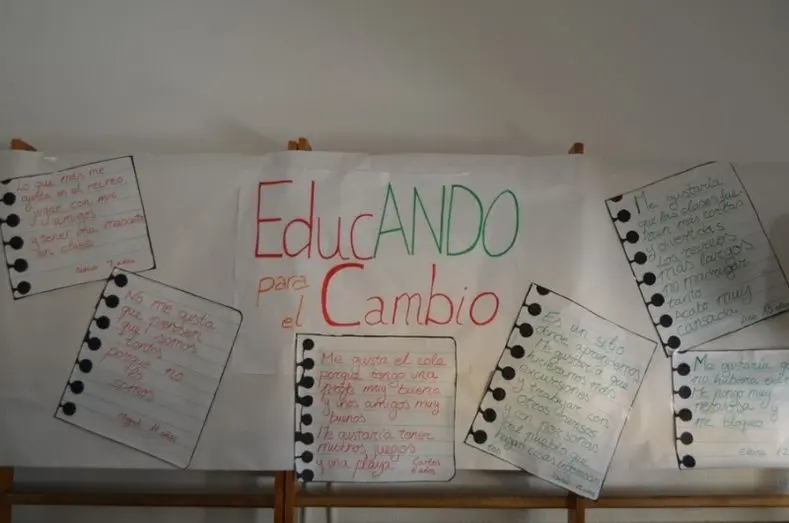 EducANDO
para
el Cambio
Lo que más me
gusta es el recreo
jugar con mis
amigos
y tener una mascota
en clase
7 años
No me gusta
que piensen
que somos
tontos
porque no
lo
somos
Miguel 11 años
Me gusta el cole
porque tengo una
profe muy buena
y unos amigos muy
buenos
Me gustaría tener
muchos juegos
y una playa
Carlos
6 años
Es un sitio
donde aprendemos
Me gustaría que
hiciéramos más
excursiones
y trabajar con
otros cursos
y con personas
del pueblo que
hagan cosas interesantes
Me gustaría
que las clases
fueran más cortas
y divertidas
Los recreos
más largos
no madrugar
tanto
Acabo muy
cansada
Me gustaría q
no hubiera
Me pongo muy
nerviosa y
me bloqueo
Elena 12